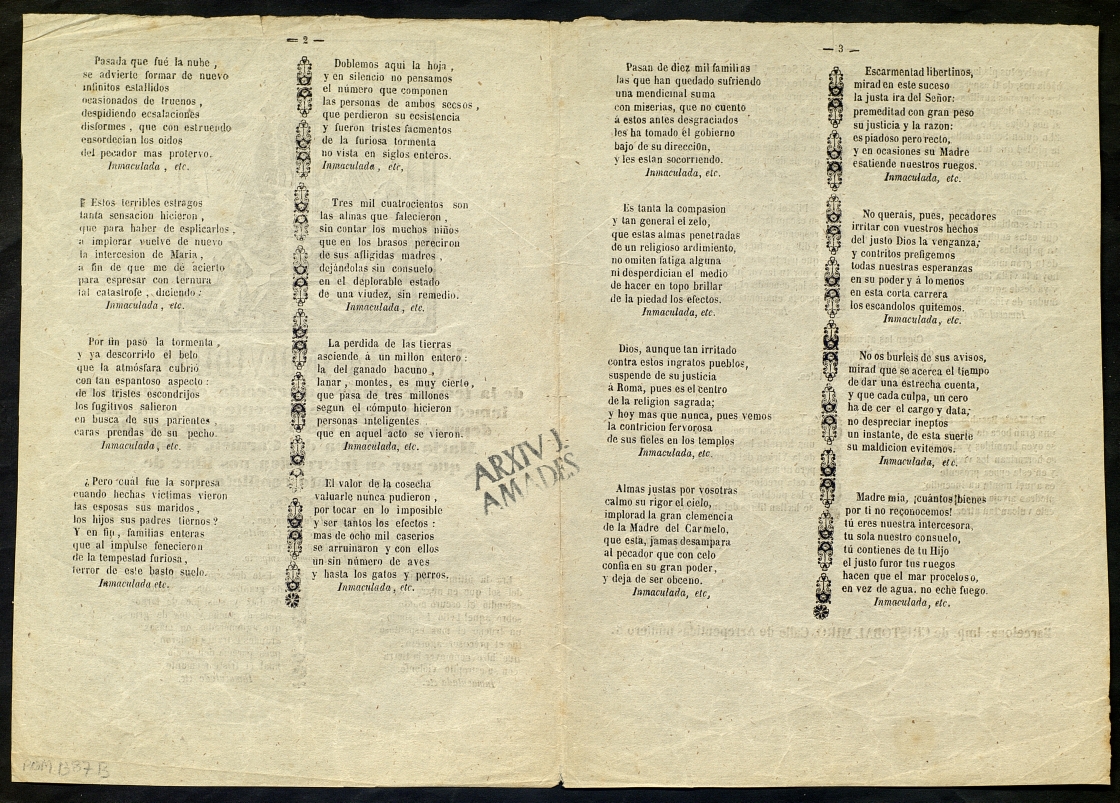 — 2 —
Pasada que fué la nube ,
se advierte formar de nuevo
infinitos estallidos
ocasionados de truenos ,
despidiendo ecsalaciones
disformes , que con estruendo
ensordecian los oidos
del pecador mas protervo.
Inmaculada , etc.
Estos terribles estragos
tanta sensacion hicieron ,
que para haber de esplicarlos ,
a implorar vuelve de nuevo
la intercesion de Maria ,
a fin de que me de acierto
para espresar con ternura
tal catastrofe , diciendo :
Inmaculada , etc.
Por fin pasó la tormenta ,
y ya descorrido el belo
que la atmósfara cubrió
con tan espantoso aspecto :
de los tristes escondrijos
los fugitivos salieron
en busca de sus parientes ,
caras prendas de su pecho.
Inmaculada , etc.
¿ Pero cuál fue la sorpresa
cuando hechas victimas vieron
las esposas sus maridos ,
los hijos sus padres tiernos ?
Y en fin , familias enteras
que al impulse fenecieron
de la tempestad furiosa ,
terror de este basto suelo.
Inmaculada etc.
Doblemos aqui la hoja ,
y en silencio no pensamos
el número que componen
las personas de ambos secsos ,
que perdieron su ecsistencia
y fueron tristes facmentos
de la furiosa tormenta
no vista en siglos enteros.
Inmaculada , etc,
Tres mil cuatrocientos son
las almas que falecieron ,
sin contar los muchos niños
que en los brasos pereciron
de sus afligidas madres ,
dejándolas sin consuelo
en el deplorable estado
de una viudez, sin remedio.
Inmaculada, etc.
La perdida de las tierras
asciende á un millon entero :
la del ganado bacuno ,
lanar , montes, es muy cierto,
que pasa de tres millones
segun el cómputo hicieron
personas inteligentes
que en aquel acto se vieron.
Inmaculada, etc.
El valor de la cosecha
valuarle nunca pudieron ,
por tocar en lo imposible
y ser tantos los efectos :
mas de ocho mil caserios
se arruinaron y con ellos
un sin número de aves
y hasta los gatos y perros.
Inmaculada, etc.
ARXIV J.
AMADES
— 3 —
Pasan de diez mil familias
las que han quedado sufriendo
una mendicinal suma
con miserias, que no cuento
á estos antes desgraciados
les ha tomado el gobierno
bajo de su direccion,
y les estan socorriendo.
Inmaculada, etc.
Es tanta la compasion
y tan general el zelo,
que estas almas penetradas
de un religioso ardimiento,
no omiten fatiga alguna
ni desperdician el medio
de hacer en topo brillar
de la piedad los efectos.
Inmaculada, etc.
Dios, aunque tan irritado
contra estos ingratos pueblos,
suspende de su justicia
á Roma, pues es el centro
de la religion sagrada;
y hoy mas que nunca, pues vemos
la contricion fervorosa
de sus fieles en los templos
Inmaculada, etc.
Almas justas por vosotras
calmo su rigor el cielo,
implorad la gran clemencia
de la Madre del Carmelo,
que esta, jamas desampara
al pecador que con celo
confia en su gran poder,
y deja de ser obceno.
Inmaculada, etc,
Escarmentad libertinos,
mirad en este suceso
la justa ira del Señor:
premeditad con gran peso
su justicia y la razon:
es piadoso pero recto,
y en ocasiones su Madre
esatiende nuestros ruegos.
Inmaculada, etc.
No querais, pues, pecadores
irritar con vuestros hechos
del justo Dios la venganza;
y contritos prefigemos
todas nuestras esperanzas
en su poder y á lo menos
en esta corta carrera
los escandolos quitemos.
Inmaculada, etc.
No os burleis de sus avisos,
mirad que se acerca el tiempo
de dar una estrecha cuenta,
y que cada culpa, un cero
ha de cer el cargo y data;
no despreciar ineptos
un instante, de esta suerte
su maldicion evitemos.
Inmaculada, etc.
Madre mia, ¡cuántos bienes
por ti no reconocemos!
tú eres nuestra intercesora,
tu sola nuestro consuelo,
tú contienes de tu Hijo
el justo furor tus ruegos
hacen que el mar proceloso,
en vez de agua, no eche fuego.
Inmaculada, etc.